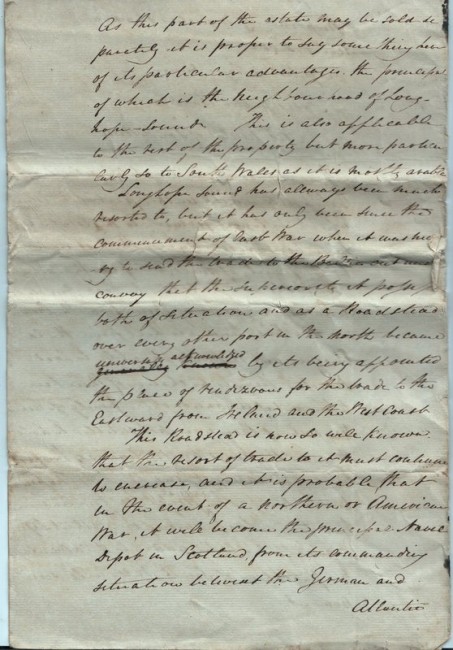 As this part of the estate may be sold se
parately it is proper to say something here
of its particular advantages. the principal
of which is the Neighbourhood of Long-
hope-Sound. This is also applicable
to the rest of the property but more particu
larly so to South Wales as it is mostly arable
Longhope Sound has allways been much
resorted to, but it has only been since the
commencement of last War when it was
to send the trade to the under
convoy that the superiority it possesses
both of situation and as a Roadstead
over every other port in the north became
universally acknowledged
generally by its being appointed
the place of rendezvous for the trade to the
Eastward from Ireland and the West Coast
This Roadstead is now so well known
that the resort of trade to it must continue
to encrease, and it is probable that
in the event of a northern or American
War, it will become the principal Naval
Depot in Scotland, from its commanding
situation betwixt the German and
Atlantic